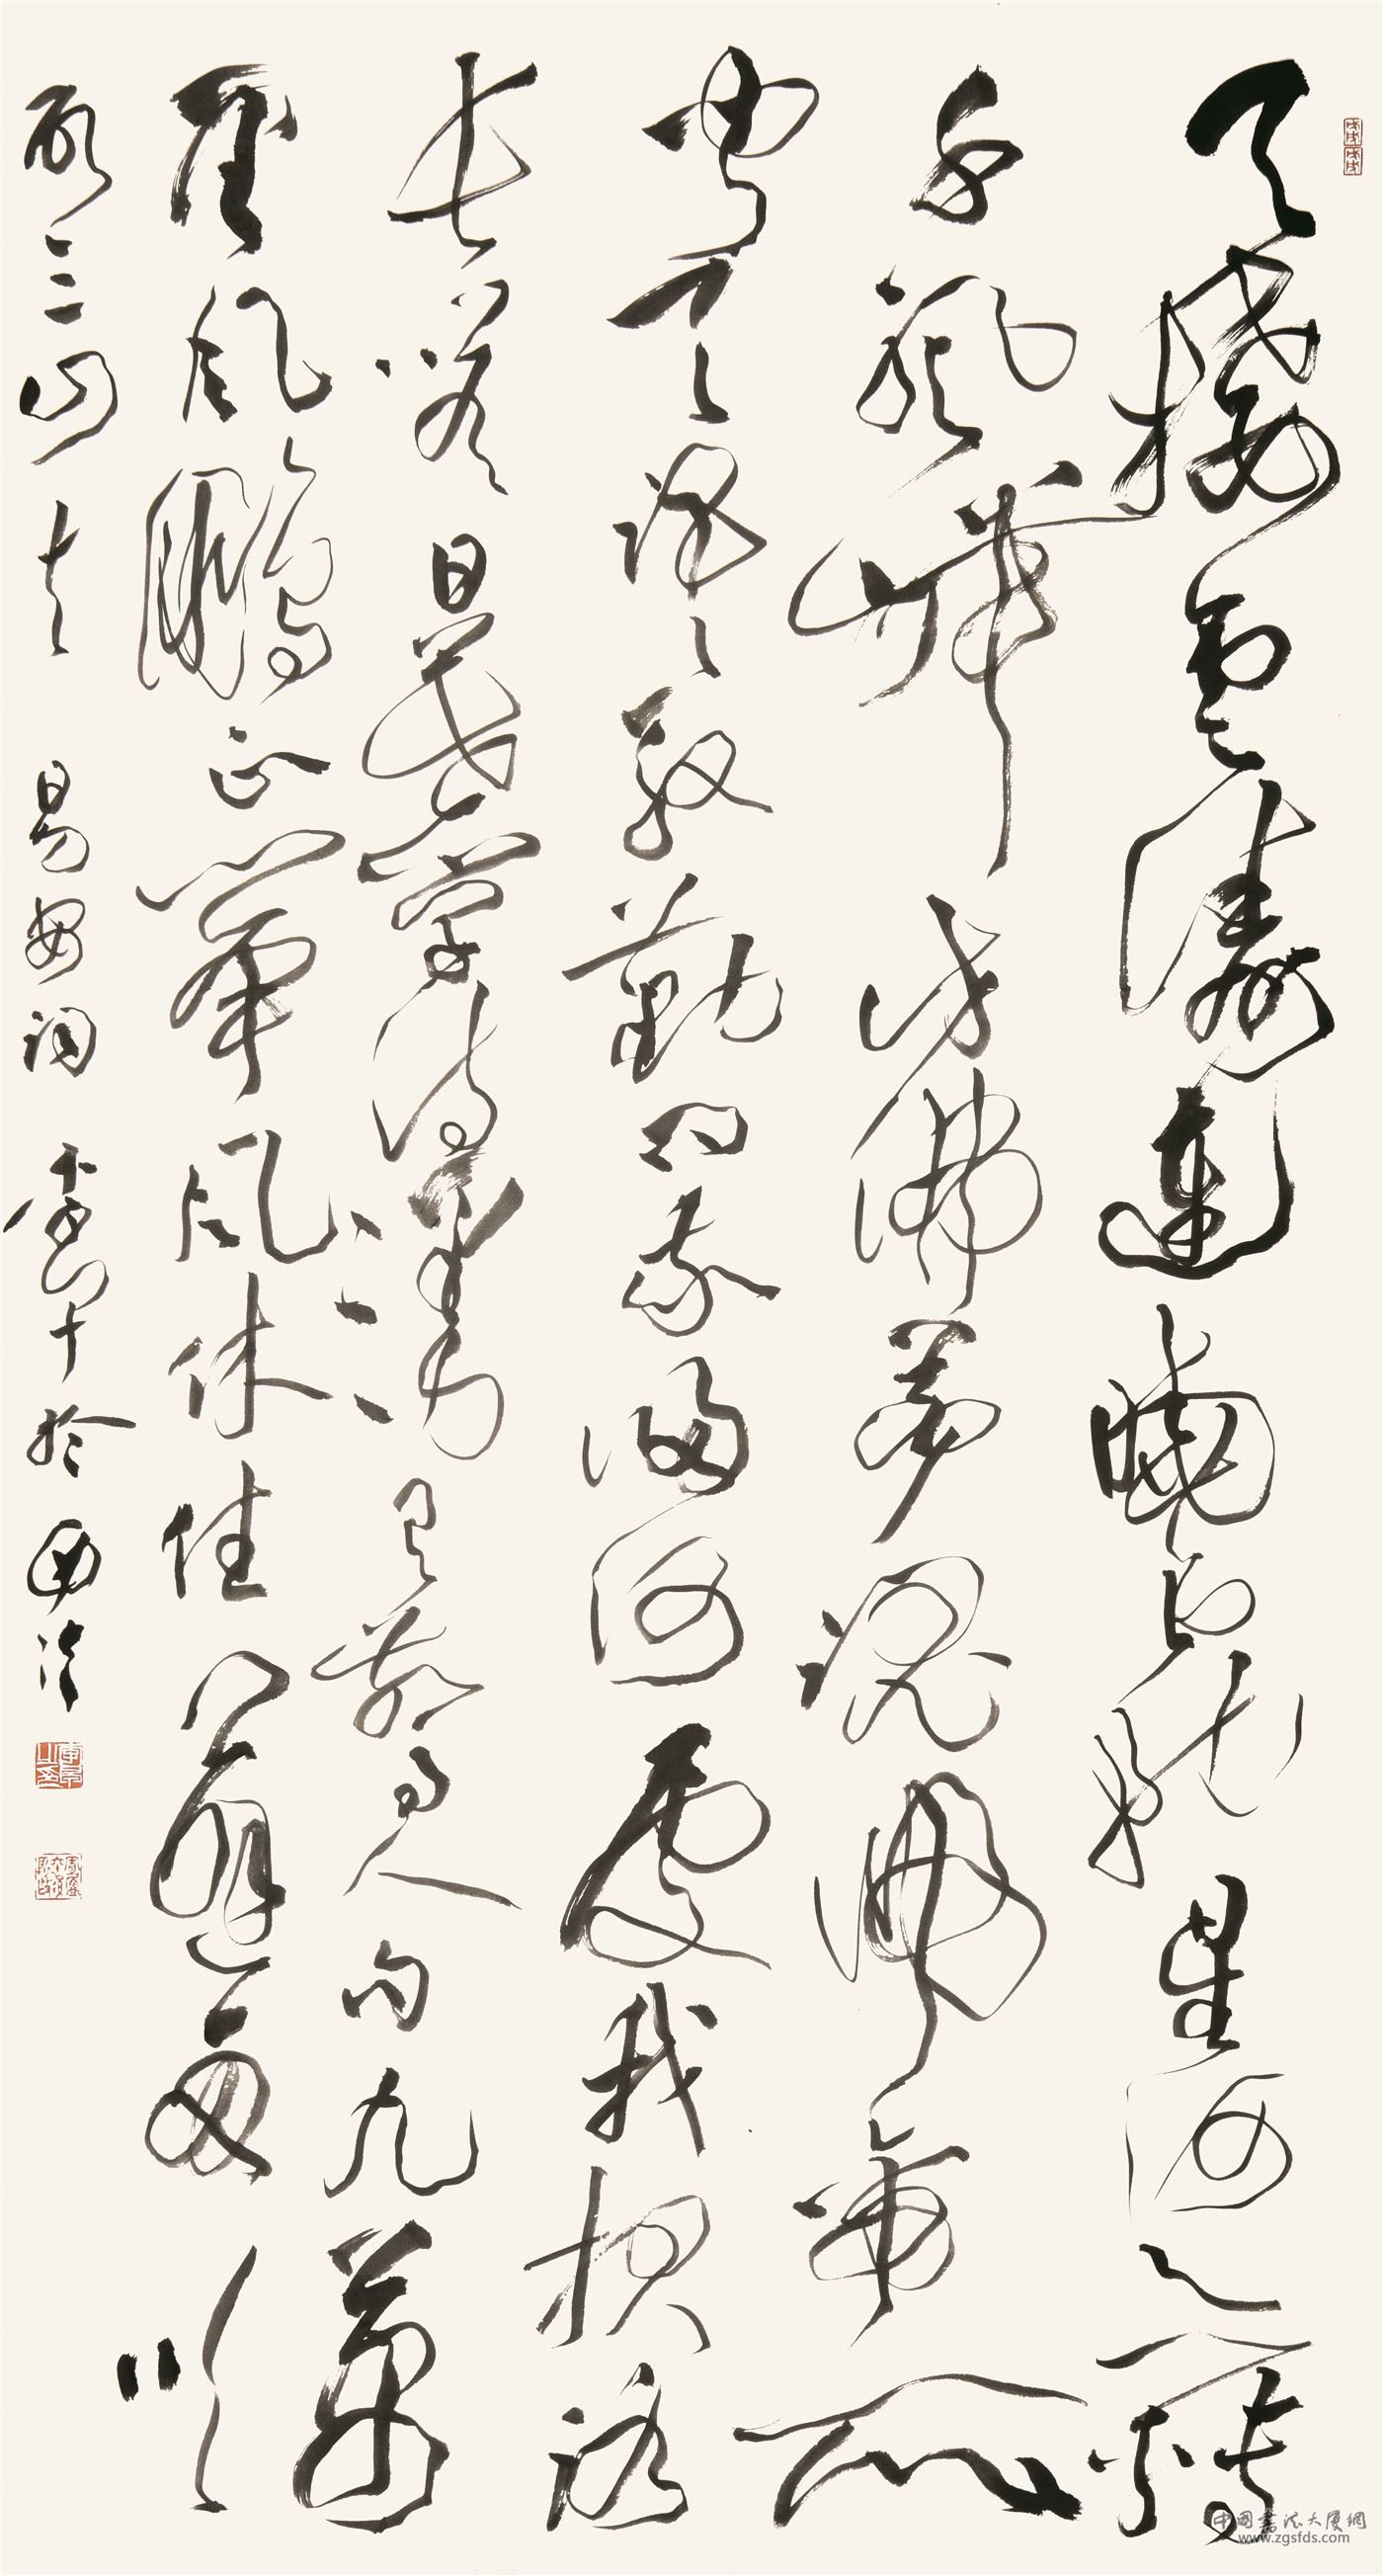 天接云涛连晓雾星河欲转
千帆舞仿佛梦魂归帝所
闻天语殷勤问我归何处我报路
长嗟日暮学诗漫有惊人句九万
里风鹏正举风休住蓬舟吹
取三山去 易安词 于西泠
中国书法大厦网
www.zgsfds.com